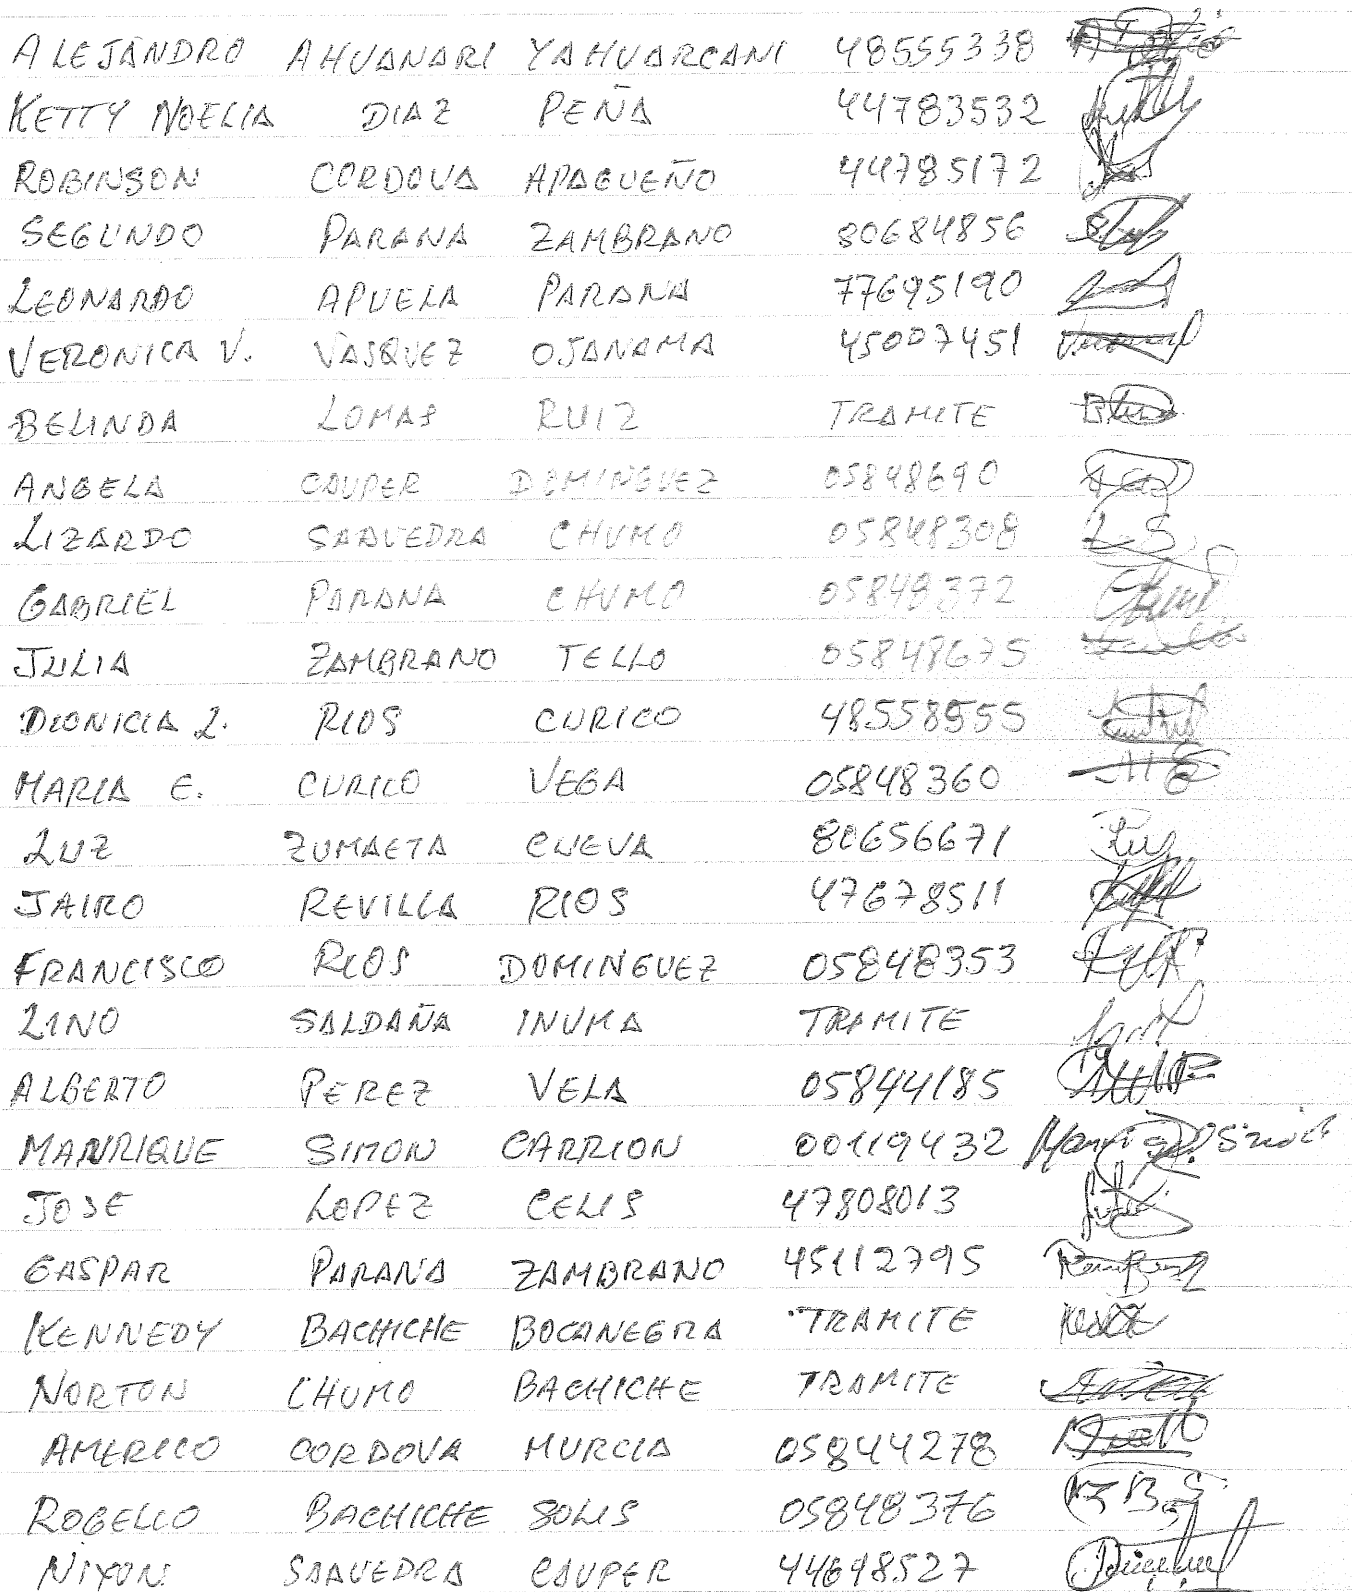 ALEJANDRO AHUANARI YAHUARCANI 48555338
KETTY NOELIA DIAZ PEÑA 44783532
ROBINSON CORDOVA APAGUEÑO 44785172
SEGUNDO PARANA ZAMBRANO 80684856
LEONARDO APUELA PARANA 77695190
VERONICA V. VASQUEZ OJANAMA 45007451
BELINDA LOMAS RUIZ TRAMITE
ANGELA CAUPER DOMINGUEZ 05848690
LIZARDO SAAVEDRA CHUMO 05848308
GABRIEL PARANA CHUMO 05848372
JULIA ZAMBRANO TELLO 05848675
DIONICIA L. RIOS CURICO 48558555
MARIA E. CURICO VEGA 05848360
LUZ ZUMAETA CUEVA 80656671
JAIRO REVILLA RIOS 47678511
FRANCISCO RIOS DOMINGUEZ 05848353
LINO SALDAÑA INUMA TRAMITE
ALBERTO PEREZ VELA 05844185
MANRIQUE SIMON CARRION 00119432
JOSE LOPEZ CELIS 47808013
GASPAR PARANA ZAMBRANO 45112795
KENNEDY BACHICHE BOCANEGRA TRAMITE
NORTON CHUMO BACHICHE TRAMITE
AMERICO CORDOVA MURCIA 05844278
ROGELIO BACHICHE SOLIS 05848376
NIXON SAAVEDRA CAUPER 44698527